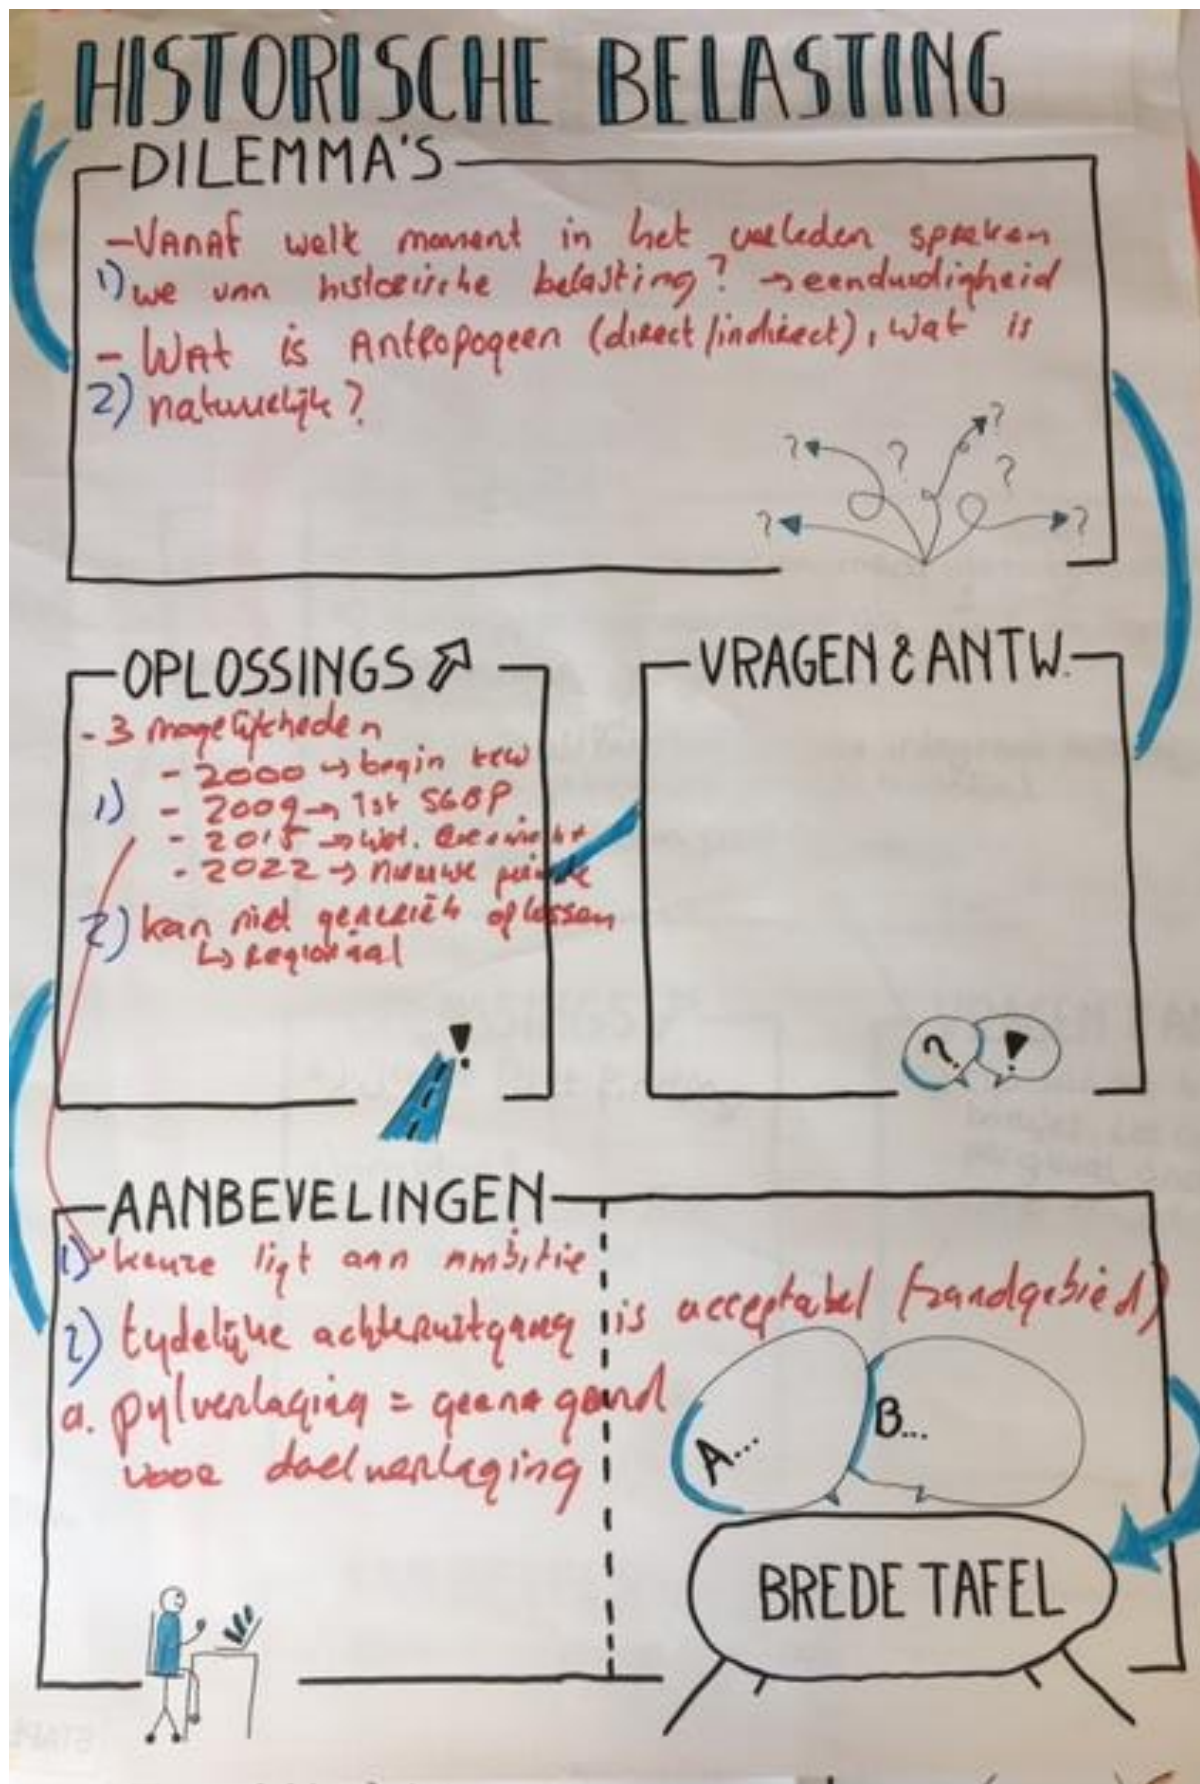 HISTORISCHE BELASTING
DILEMMA'S
- VANAF welk moment in het verleden spreken
1) we van historische belasting? → eenduidigheid
- WAt is Antropogeen (direct/indirect), wat is
2) natuurlijk?
? ? ? ? ? ?
OPLOSSINGS
- 3 mogelijkheden
- 2000 → begin krw
1) - 2009 → 1st SGBP
- 2015 →
- 2022 → nieuwe periode
2) kan niet generiek oplossen
↳ regionaal
!
VRAGEN & ANTW.
? !
AANBEVELINGEN
1) keuze ligt aan ambitie
2) tydelijke achteruitgang is acceptabel (randgebied)
a. pylverlaging = geen grond
voor doelverlaging
A... B...
BREDE TAFEL